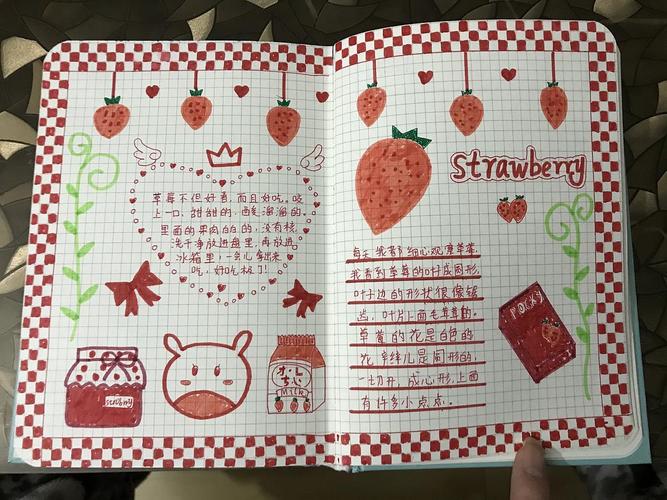 草莓不但好看,而且好吃,咬
上一口,甜甜的,酸溜溜的。
里面的果肉白白的,没有核,
洗干净放进盘里,再放进
冰箱里,一会儿拿出来
吃,好吃极了!
Milk
Strawberry
每天我都细心观察草莓,
我看到草莓的叶成圆形,
叶边的形状很像锯
齿,叶片上面毛茸茸的,
草莓的花是白色的
花瓣儿是圆形的,
一切开,成心形,上面
有许多小点点。
POCKY